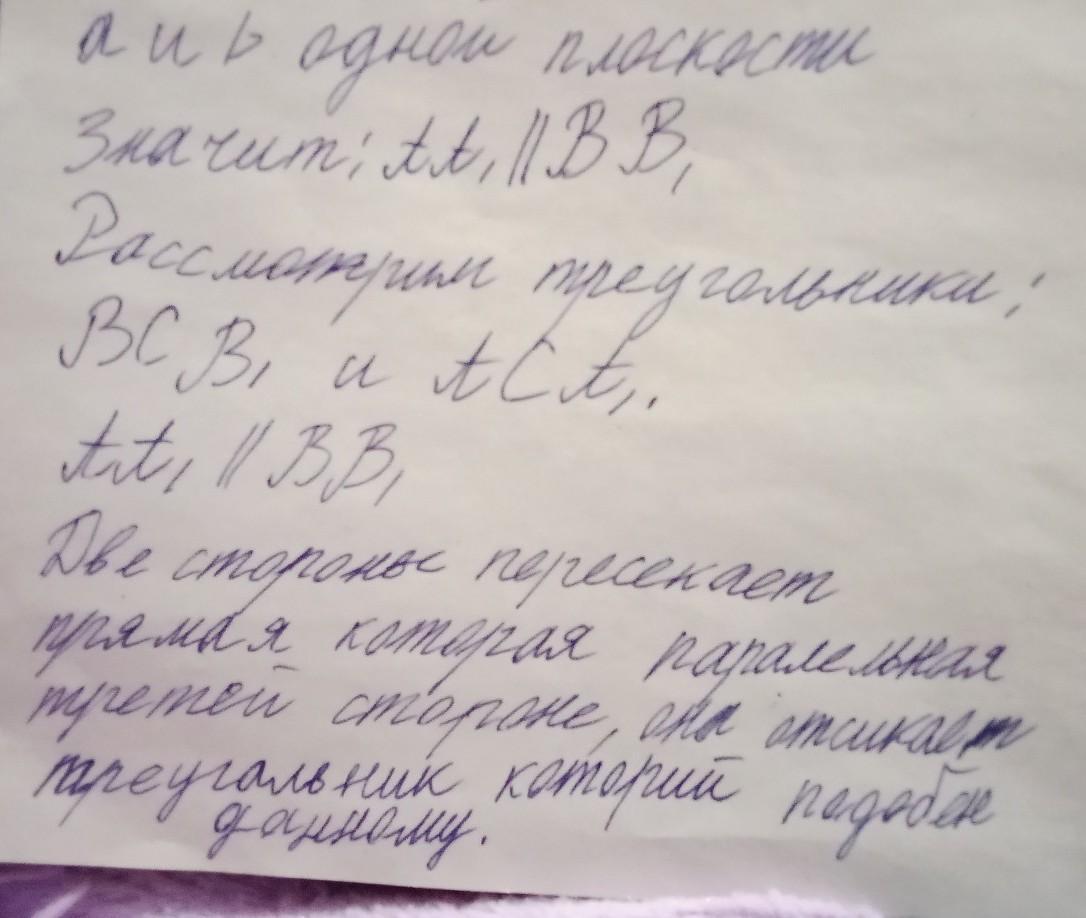 а и b одной плоскости
Значит; AA₁ || BB₁
Рассмотрим треугольники;
BCB₁ и ACA₁.
AA₁ || BB₁
Две стороны пересекает
прямая которая паралельная
третей стороне, она отсикает
треугольник которий подобен
данному.